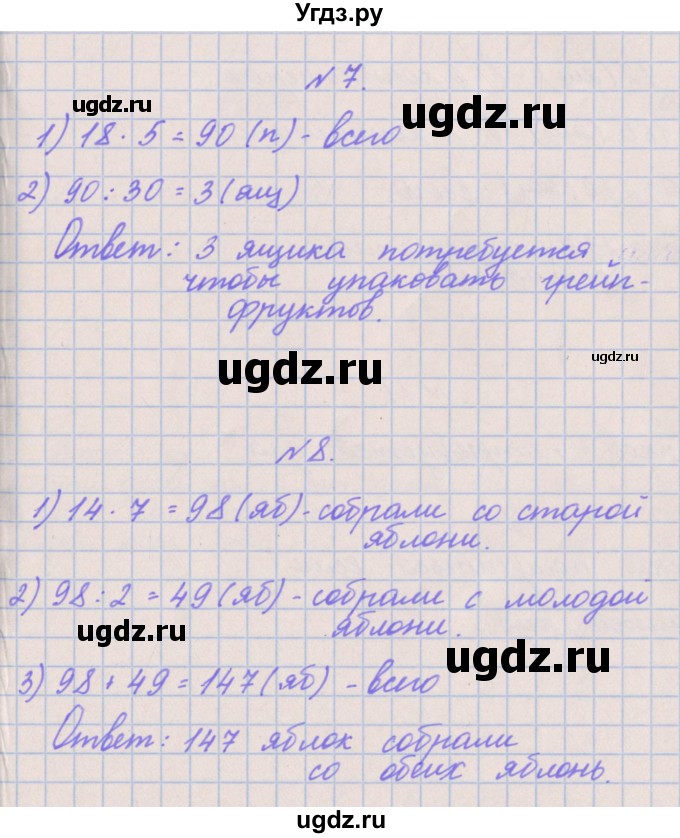 Угдз.ру
№7.
ugdz.ru
ugdz.ru
1) 18 · 5 = 90 (п) - всего
2) 90 : 30 = 3 (ящ)
Ответ: 3 ящика потребуется
чтобы упаковать грейп-
фруктов.
ugdz.ru
ugdz.ru
№8.
1) 14 · 7 = 98 (яб) - собрали со старой
яблони.
2) 98 : 2 = 49 (яб) - собрали с молодой
яблони.
ugdz.ru
ugdz.ru
3) 98 + 49 = 147 (яб) - всего
Ответ: 147 яблок собрали
со обеих яблонь.
ugdz.ru